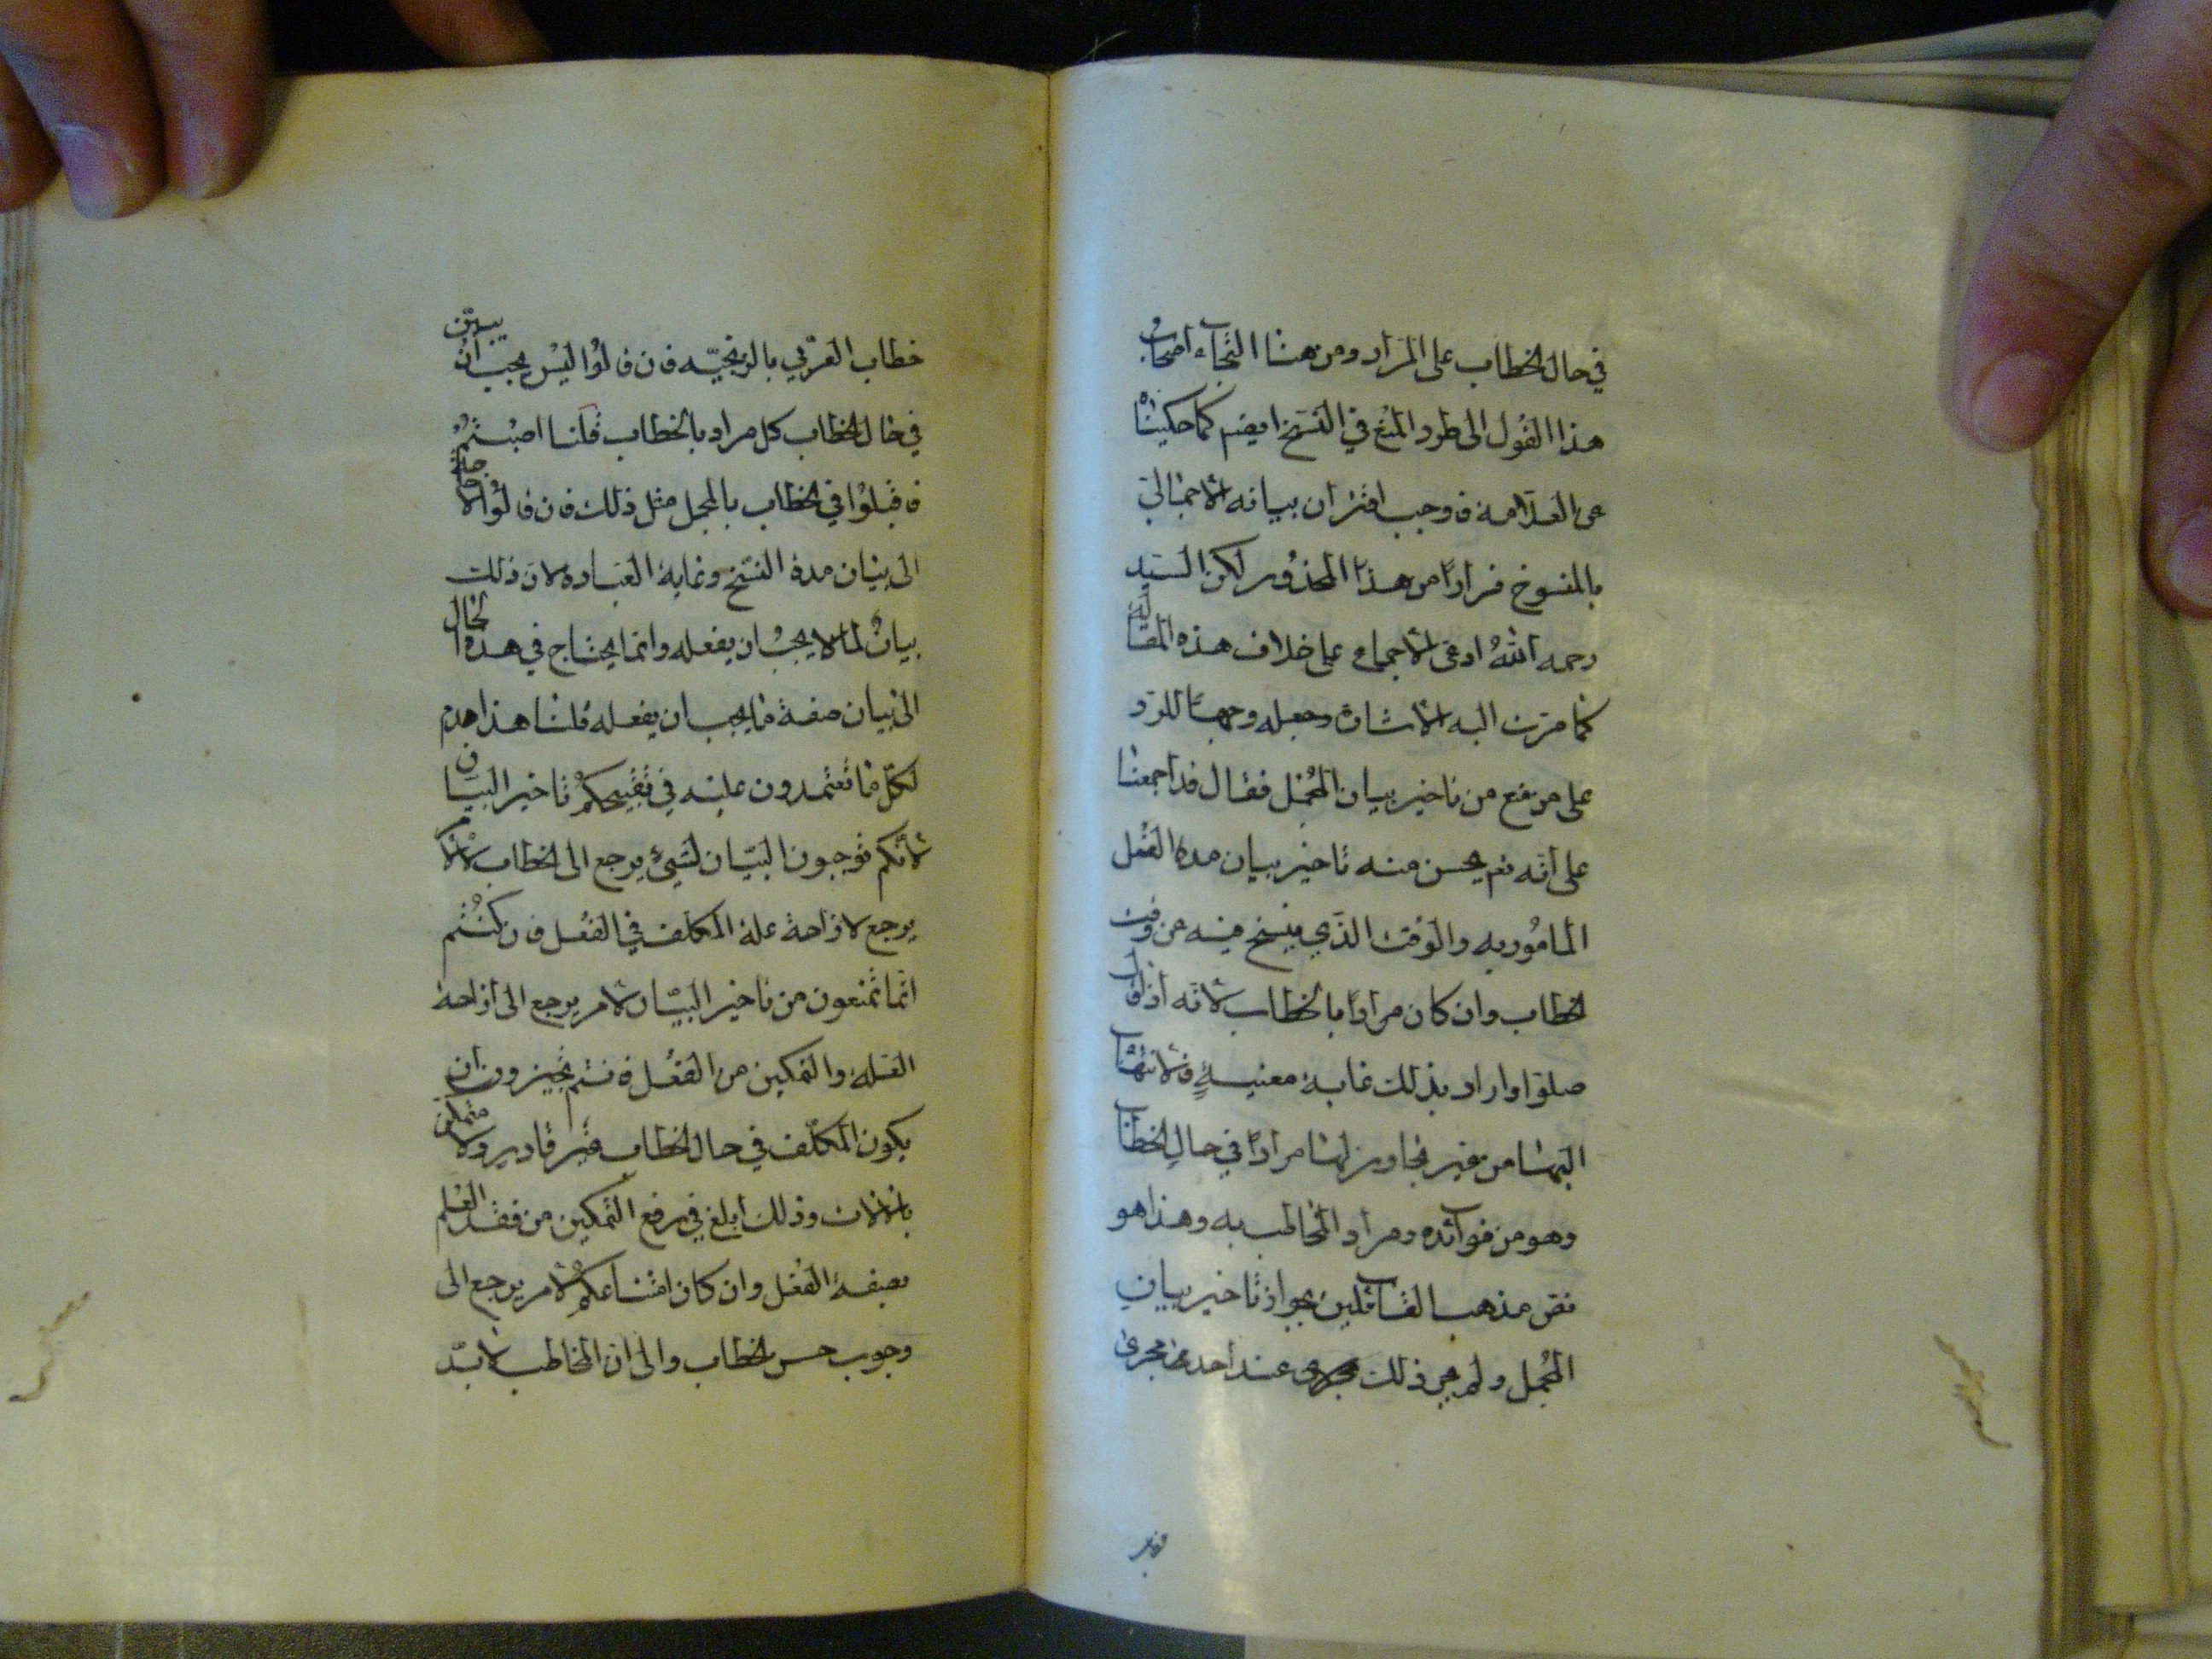 في حال الخطاب على المراد ومن هنا التجاء اصحاب
هذا القول الى طرد المنع في النسخ ايضم كما حكيناه
عن العلامة فاوجب اقتران بيانه الاجمالي
بالمنسوخ فرارا من هذا المحذور لكن السيد
رحمه الله ادعى الاجماع على خلاف هذه المقالة
كما مرت اليه الاشارة وجعله وجها للرد
على من منع من تاخير بيان المجمل فقال قد اجمعنا
على انه تع يحسن منه تاخير بيان مدة الفعل
المامور به والوقت الذي ينسخ فيه عن وقت
الخطاب وان كان مرادا بالخطاب لانه اذا قال
صلوا واراد بذلك غاية معينة فالانتهاء
اليها من غير تجاوز لها مرادا في حال الخطاب
وهو من فوائده ومراد المخاطب به وهذا هو
نص مذهب القائلين بجواز تاخير بيان
المجمل ولم يجر ذلك عند احد مجرى
خطاب العربي بالزنجية فان قالوا ليس يجب ان يبين
في حال الخطاب كل مراد بالخطاب قلنا اصبتم
فاقبلوا في الخطاب بالمجمل مثل ذلك فان قالوا لا حاجة
الى بيان مدة النسخ وغاية العبادة لان ذلك
بيان لما لا يجب ان يفعله وانما يحتاج في هذه الحال
الى بيان صفة ما يجب ان يفعله قلنا هذا هدم
لكل ما تعتمدون عليه في تقبيحكم تاخير البيان
لانكم توجبون البيان لشيئ يرجع الى الخطاب لا لامر
يرجع لازاحة علة المكلف في الفعل فان كنتم
انما تمنعون من تاخير البيان لامر يرجع الى ازاحة
العلة والتمكين من الفعل فانتم تجيزون ان
يكون المكلف في حال الخطاب غير قادر ولا متمكن
بالالات وذلك ابلغ في رفع التمكين من فقد العلم
بصفة الفعل وان كان امتناعكم لامر يرجع الى
وجوب حسن الخطاب والى ان المخاطب لا بد